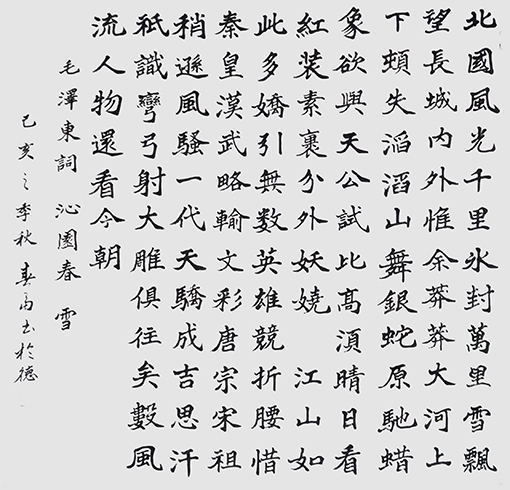 北國風光千里氷封萬里雪飄
望長城內外惟余莽莽大河上
下頓失滔滔山舞銀蛇原馳蜡
象欲與天公試比高須晴日看
紅装素裹分外妖嬈 江山如
此多嬌引無数英雄競折腰惜
秦皇漢武略輸文彩唐宗宋祖
稍遜風騷一代天驕成吉思汗
祇識彎弓射大雕俱往矣數風
流人物還看今朝
毛澤東詞 沁園春 雪
己亥之季秋 书於德